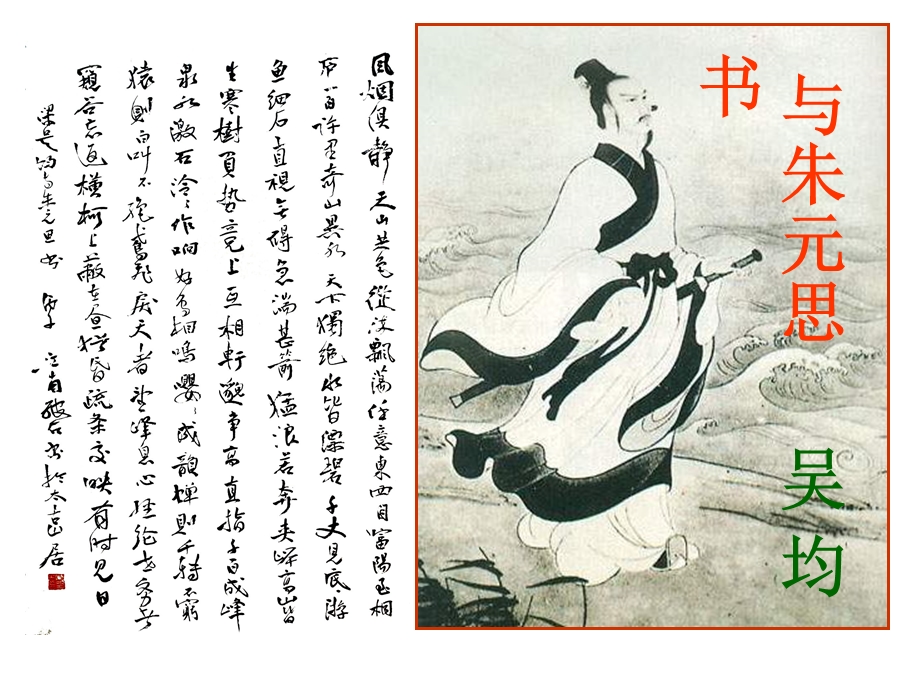 与朱元思
书
吴均
風烟俱静天山共色從流飄蕩任意東西自富陽至桐
庐一百許里奇山異水天下獨絶水皆漂碧千丈見底游
鱼細石直視無礙急湍甚箭猛浪若奔夹岸高山皆
生寒樹負势竞上互相軒邈争高直指千百成峰
泉水激石泠泠作响好鸟相鳴嚶嚶成韻蟬則千轉不窮
猿則百叫不绝鸢飛戾天者望峰息心經綸世务者
窺谷忘返横柯上蔽在昼猶昏疏条交映有时見日
梁吴均与朱元思书